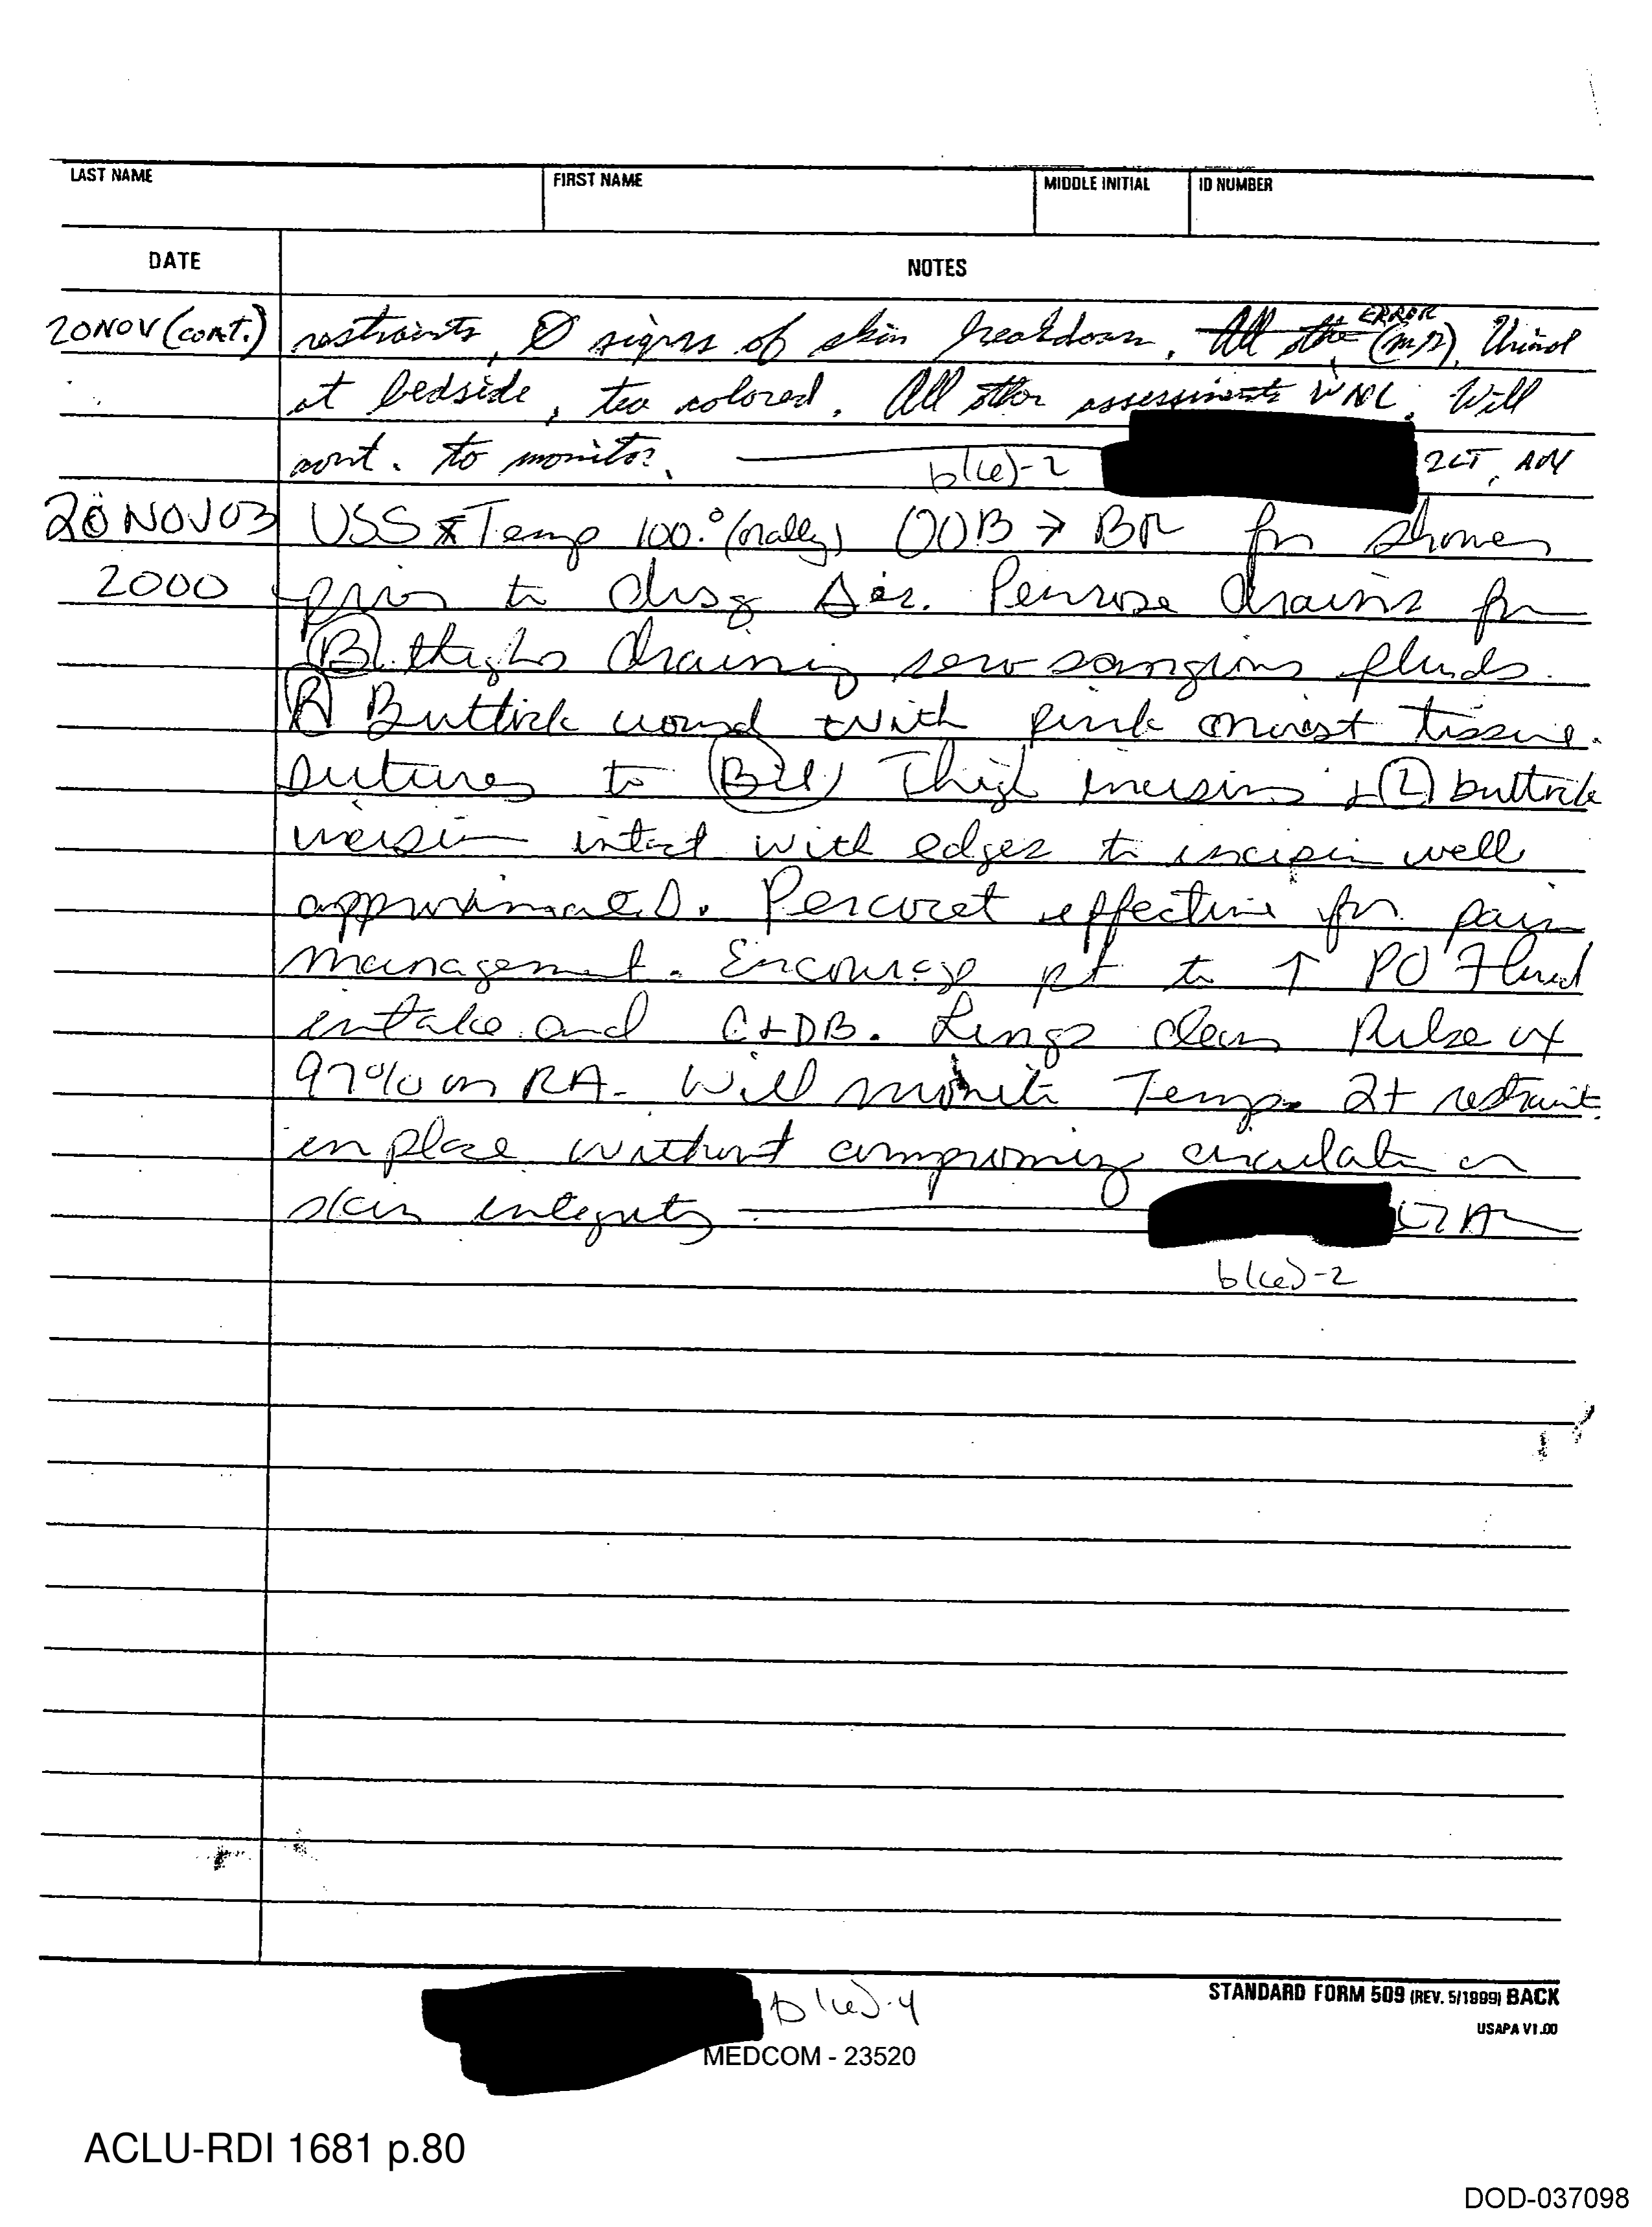 LAST NAME FIRST NAME MIDDLE INITIAL ID NUMBER
DATE NOTES
20NOV (cont.) restraints, Ø signs of skin breakdown. All other ERROR (MR), Urinal
at bedside, tea colored. All other assessments WNL. Will
cont. to monitor. b(6)-2 2LT, AN
20NOV03 VSS Temp 100.° (orally) OOB → BR for shower
2000 prior to drsg Δ'er. Penrose drains fm
(B) thighs draining serosangious fluids.
(R) Buttock wound with pink moist tissue.
Sutures to (Bil) Thigh incisions + (L) buttock
incision intact with edges to incision well
approximated. Percocet effective for pain
management. Encourage pt to ↑ PO Fluid
intake and C+DB. Lungs clear Pulse ox
97% on RA. Will monitor Temp. 2+ restraint
in place without compromizing circulation or
skin integrity
b(6)-2
b(6)-4
STANDARD FORM 509 (REV. 5/1999) BACK
USAPA V1.00
MEDCOM - 23520
ACLU-RDI 1681 p.80
DOD-037098